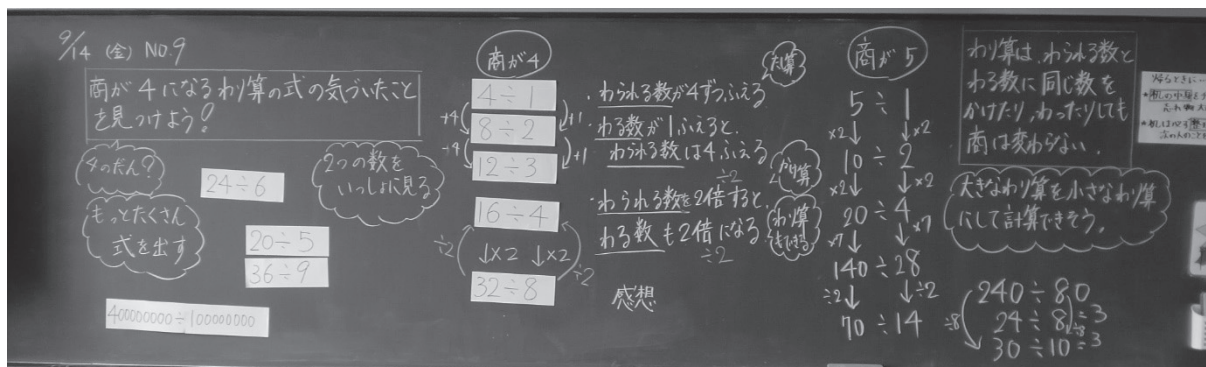 9/14 (金) No.9
商が4になるわり算の式の気づいたこと
を見つけよう!
4のだん?
24÷6
2つの数を
いっしょに見る
もっとたくさん
式を出す
20÷5
36÷9
400000000÷100000000
商が4
4÷1
+4 +1
8÷2
+4 +1
12÷3
16÷4
÷2 ×2 ×2 ÷2
32÷8
・わられる数が4ずつふえる
・わる数が1ふえると、
わられる数は4ふえる
÷2
・わられる数を2倍すると、
わる数も2倍になる
÷2
わり算
もできる
感想
商が5
5÷1
×2 ×2
10÷2
×2 ×2
20÷4
×7 ×7
140÷28
÷2 ÷2
70÷14
わり算は、わられる数と
わる数に同じ数を
かけたり、わったりしても
商は変わらない。
大きなわり算を小さなわり算
にして計算できそう。
240÷80
24÷8=3
÷8 ÷8
30÷10=3
帰るときに…